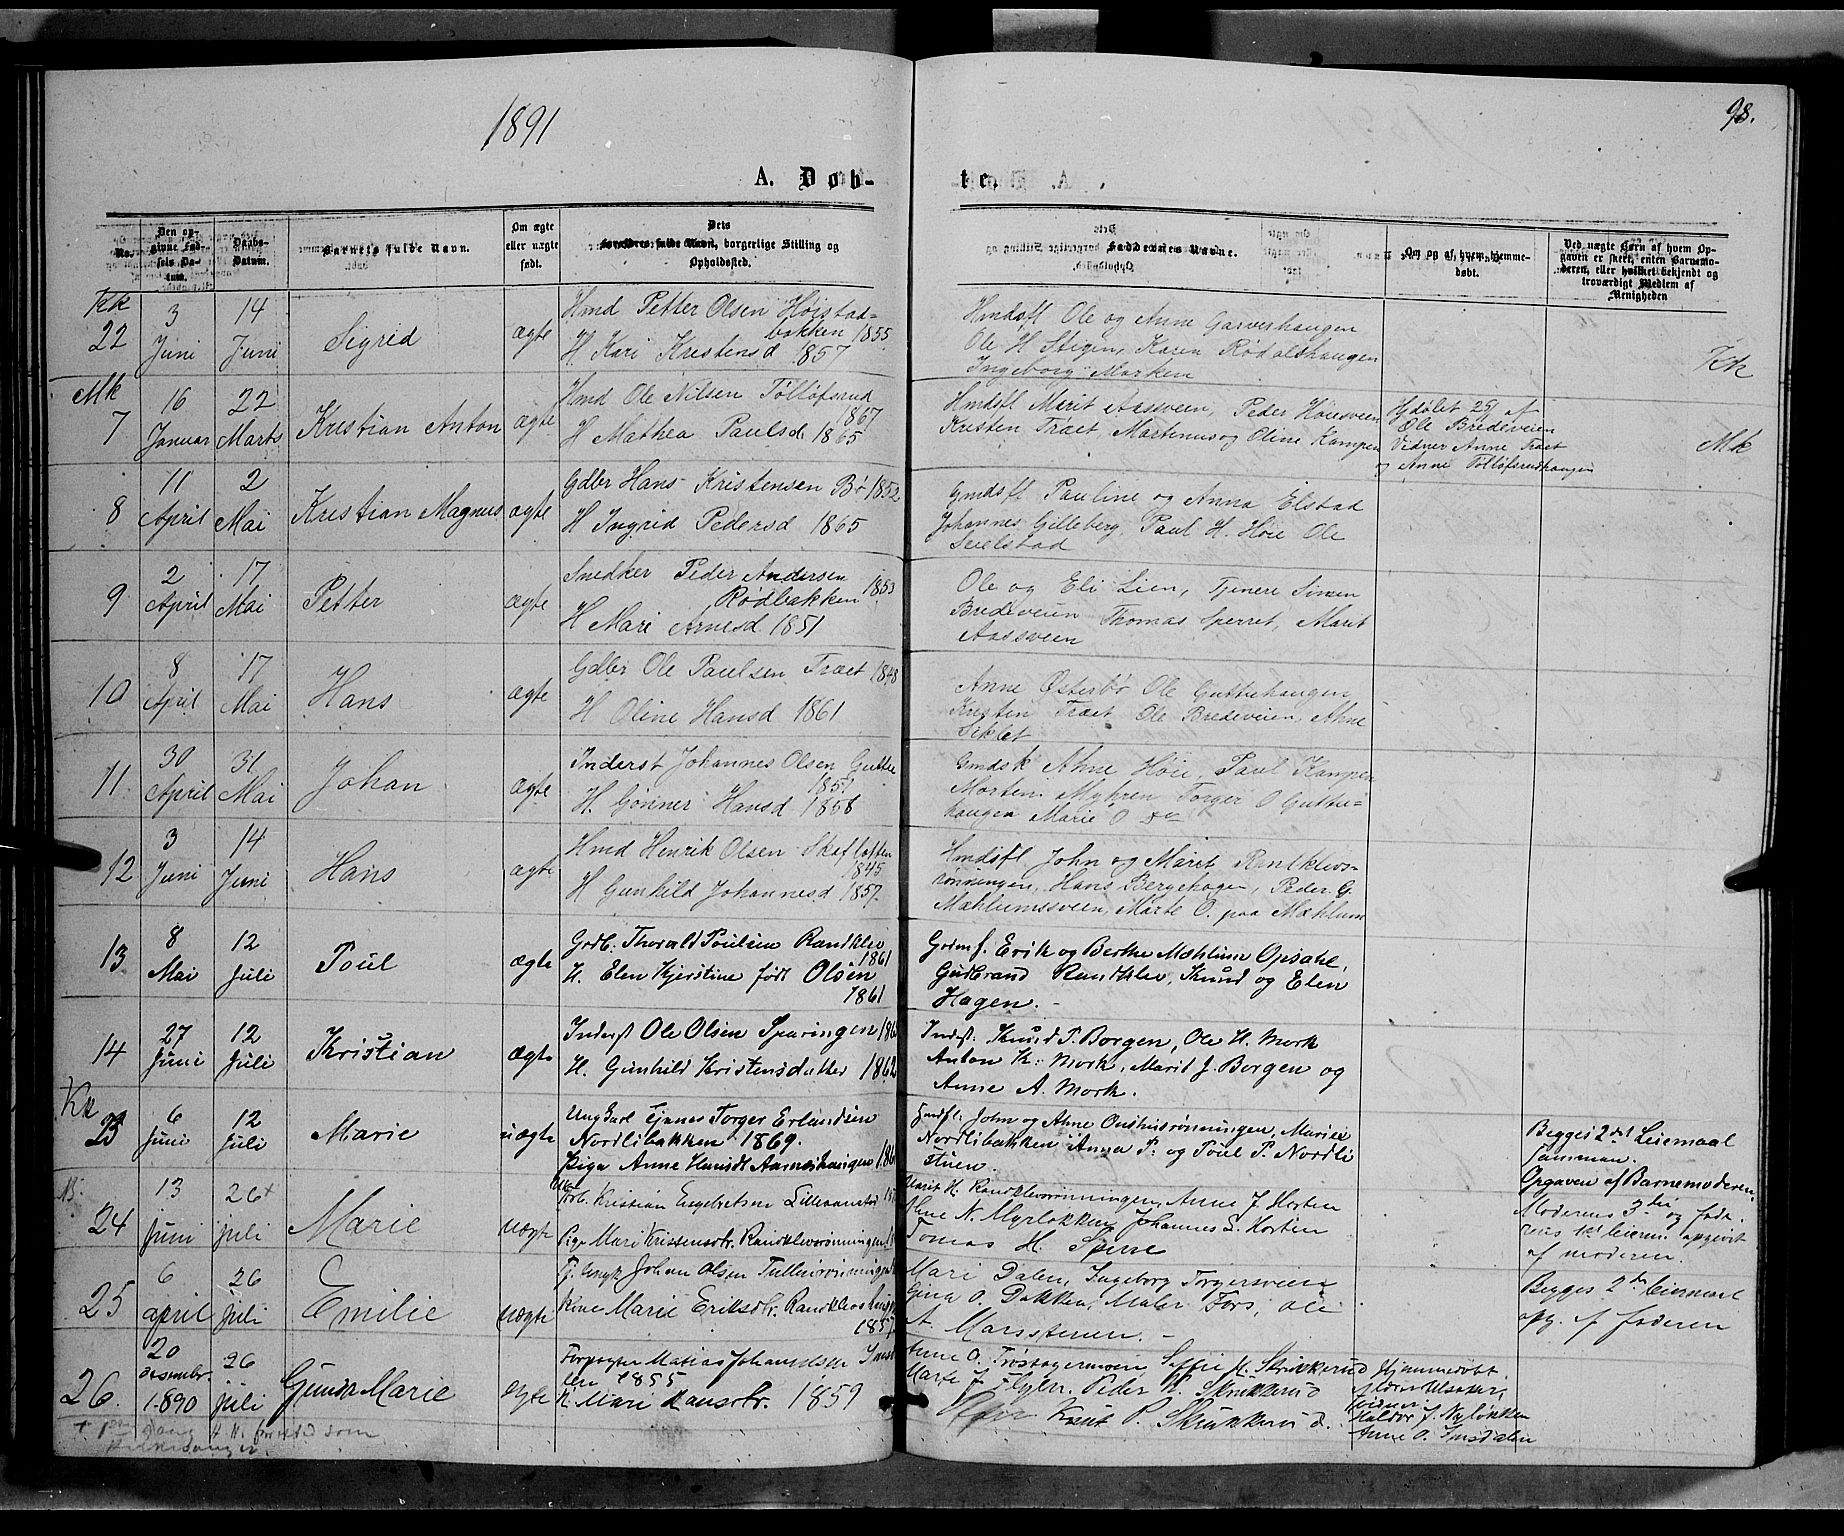 1891
98.
A. Døb-
te.
No.
Den op-
givne Fød-
sels Da-
tum.
Daabs-
Datum.
Barnets fulde Navn.
Om ægte
eller uægte
født.
Dets
Forældres fulde Navn, borgerlige Stilling og
Opholdssted.
Faddernes Navne.
Om og af hvem hjemme-
døbt.
Ved uægte Børn af hvem Op-
gaven er skeet, enten Barnemo-
deren, eller hvilket bekjendt og
troværdigt Medlem af
Menigheden
Kk
22
3
Juni
14
Juni
Sigrid
ægte
Hmd Petter Olsen Höistad-
bakken 1855
H Kari Kristensd 1857
Hmdsfl Ole og Anne Garverhaugen
Ole H Stigen, Karen Rødalshaugen
Ingeborg Marken
Kk
Mk
7
16
Januar
22
Marts
Kristian Anton
ægte
Hmd Ole Nilsen Tölløfsrud
1867
H Mathea Paulsd 1865
Hmdsfl Marit Aassveen, Peder Høiesveen
Kristen Traet, Martenus og Oline Kampen
Hjdøbt 25/1 af
Ole Bredeveien
Vidner Anne Traet
og Anne Tölløfsrudhaugen
Mk
8
11
April
2
Mai
Kristian Magnus
ægte
Gdbr Hans Kristensen Bø 1852
H Ingrid Pedersd 1865
Gmdsfl Pauline og Anna Elstad
Johannes Gilleberg, Paul H. Høie Ole
Seielstad
9
2
April
17
Mai
Petter
ægte
Snedker Peder Andersen
Rødbakken 1853
H Mari Arnesd 1851
Ole og Eli Lien, Tjenere Simen
Bredeveien Thomas Sperret, Marit
Aassveen
10
8
April
17
Mai
Hans
ægte
Gdbr Ole Paulsen Traet 1848
H Oline Hansd 1861
Anne Østerbø Ole Guttuhaugen
Kristen Træet Ole Bredeveien, Ahne
Siklet
11
30
April
31
Mai
Johan
ægte
Inderst Johannes Olsen Guttu
1851
H. Gønner Hansd 1858
Gmdsk Ahne Höie, Paul Kampen
Morten Myhren Torger O Guttu-
haugen Marie O do
12
3
Juni
14
Juni
Hans
ægte
Hmd Henrik Olsen Skafloften
1845
H Gunhild Johannesd 1857
Hmdsfl John og Marit Randklevs-
rønningen, Hans Bergehagen, Peder G.
Mæhlumssveen, Marte O. paa Mæhlum
13
8
Mai
12
Juli
Poul
ægte
Grdb. Thorvald Poulsen Randklev
1861
H. Elen Kjerstine født Olsen
1861
Grdmf. Erik og Berthe Mæhlum Opsahl,
Gudbrand Randklev, Knud og Elen
Hagen.
14
27
Juni
12
Juli
Kristian
ægte
Inderst Ole Olsen Sparingen
H. Gunhild Kristensdatter 1862
Indst. Knud P. Borgen, Ole H. Mork
Anton K. Mork, Marit J. Borgen og
Anne A. Mork.
Kk
23
6
Juni
12
Juli
Marie
uægte
Ungkarl Tjener Torger Erlandsen
Nordlibakken 1869.
Pige Anne Knudsd Aarneshaugen
John og Ahne Onshusrønningen, Marie
Nordlibakken Anna P. og Poul P. Nordli
stuen.
Begges 2det Leiemaal
sammen.
Opgaven af Barnemoderen.
24
13
juni
26+
juli
Marie
uægte
Kristian Engebretsen Lilleaamodt
Pige Mari Kristensdtr. Randklevrønningen
Marit H. Randklevrønningen, Anne J. Horten
Ahne N. Myrløkken Johannes J. Horten
Tomas H. Spirre
Moderens 3die og fade-
rens 1st leierm. opgivet
af moderen.
25
6
april
26
juli
Emilie
uægte
Johan Olsen Tullinrønningen
Marie Eriksdtr. Randklevshaugen
1857
Mari Dalen, Ingeborg Torgersveen
Gina O. Bakken, Maler Fors, Ole
A. Marsstenen.
Begges 2det leiermaal
opg. af faderen
26.
20
desember
1890
26
juli
Gunda Marie
ægte
Forpagter Matias Johannessen
1855
H. Mari Hansdtr. 1859
Anne O. Trøstagermoen Soffie H. Skrukkerud
Marte J. Flyen. Peder H. Skrukkerud
Knut P. Skrukkerud.
Hjemmedøbt
Vidner
Haldor J. Nyløkken
Anne O. Imsdalen